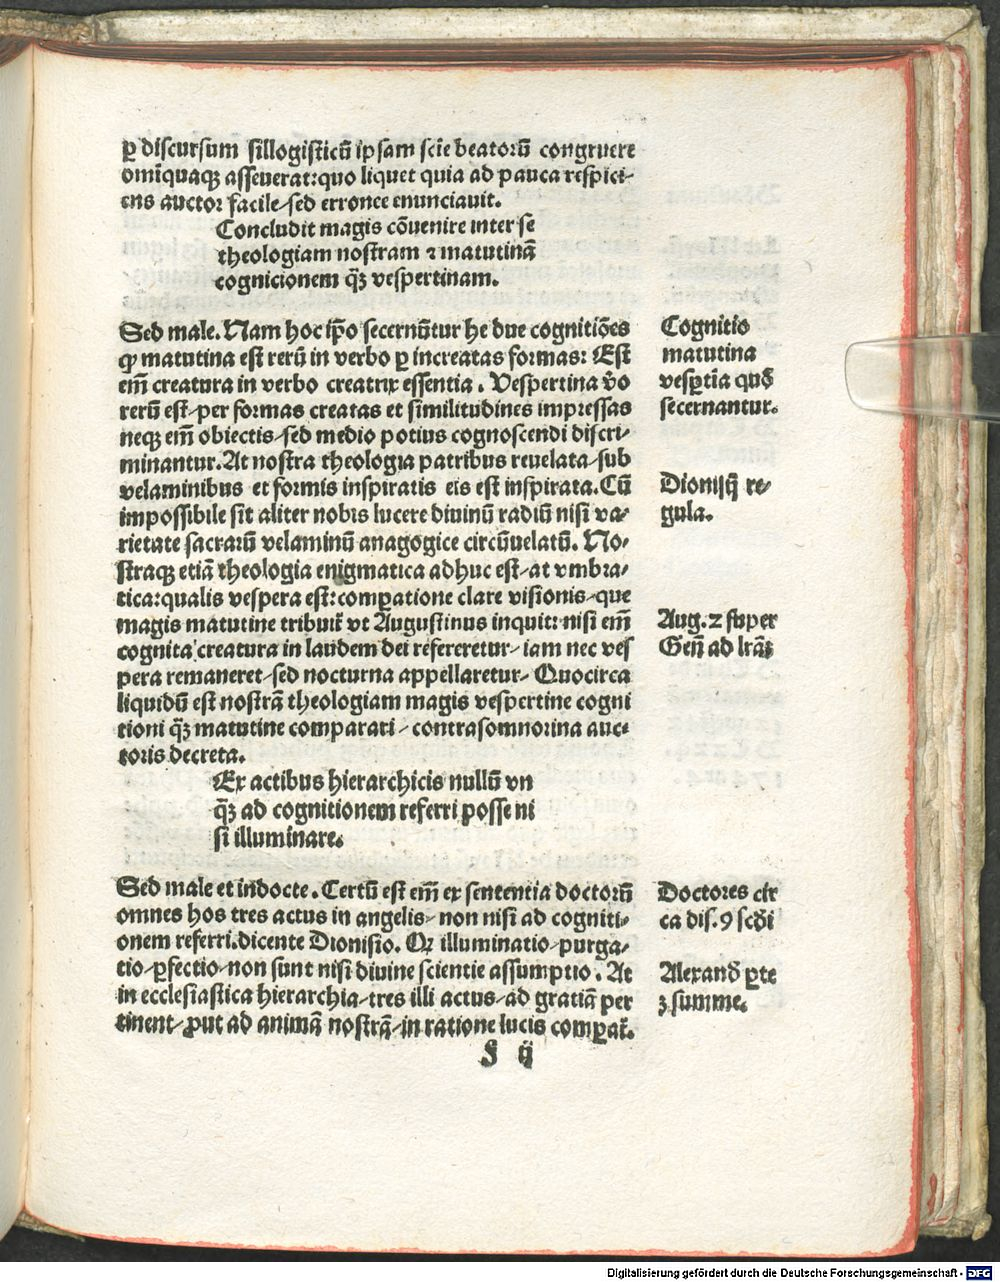 ꝑ discursum sillogisticũ ipsam sciẽ beatorũ congruere
omĩquaqꝫ asseuerat: quo liquet quia ad pauca respici-
ens auctor facile-sed erronee enunciauit.
Concludit magis cõuenire inter se
theologiam nostram ⁊ matutinã
cognicionem q̃ꝫ vespertinam.
Sed male. Nam hoc ip̃o secernũtur he due cognitiões
ꝙ matutina est rerũ in verbo ꝑ increatas formas: Est
em̃ creatura in verbo creatrix essentia. Vespertina v̊o
rerũ est-per formas creatas et similitudines impressas
neqꝫ em̃ obiectis-sed medio potius cognoscendi discri-
minantur. At nostra theologia patribus reuelata-sub
velaminibus et formis inspiratis eis est inspirata. Cũ
impossibile sit aliter nobis lucere diuinũ radiũ nisi va-
rietate sacrarũ velaminũ anagogice circũuelatũ. No-
straqꝫ etiã theologia enigmatica adhuc est-at vmbra-
tica: qualis vespera est: comꝑatione clare visionis-que
magis matutine tribuit̃ vt Augustinus inquit: nisi em̃
cognita creatura in laudem dei refereretur-iam nec ves
pera remaneret-sed nocturna appellaretur- Quocirca
liquidũ est nostrã theologiam magis vespertine cogni
tioni q̃ꝫ matutine comparari-contra somnorina auc-
toris decreta.
Ex actibus hierarchicis nullũ vn
q̃ꝫ ad cognitionem referri posse ni
si illuminare.
Sed male et indocte. Certũ est em̃ ex sententia doctorũ
omnes hos tres actus in angelis-non nisi ad cogniti-
onem referri. dicente Dionisio. Qꝛ illuminatio-purga-
tio-ꝑfectio-non sunt nisi diuine scientie assumptio. At
in ecclesiastica hierarchia-tres illi actus-ad gratiã per
tinent-ꝓut ad animã nostrã-in ratione lucis comꝑat̃.
S ij
Cognitio
matutina
vesꝑtĩa quõ
secernantur.
Dionisiꝰ re-
gula.
Aug. 2 super
Geñ ad lr̃aꝫ
Doctores cir
ca dis. 9 scďi
Alexanď ꝑte
3 summe.
Digitalisierung gefördert durch die Deutsche Forschungsgemeinschaft - DFG